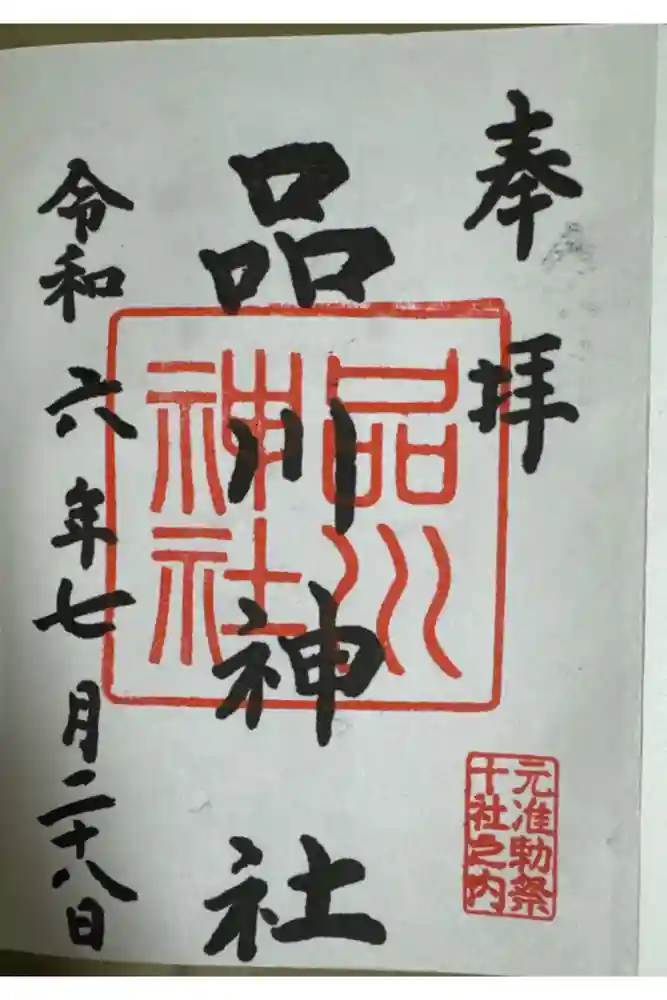 奉拝
品川神社
令和六年七月二十八日
品川
神社
元准勅祭
十社之内